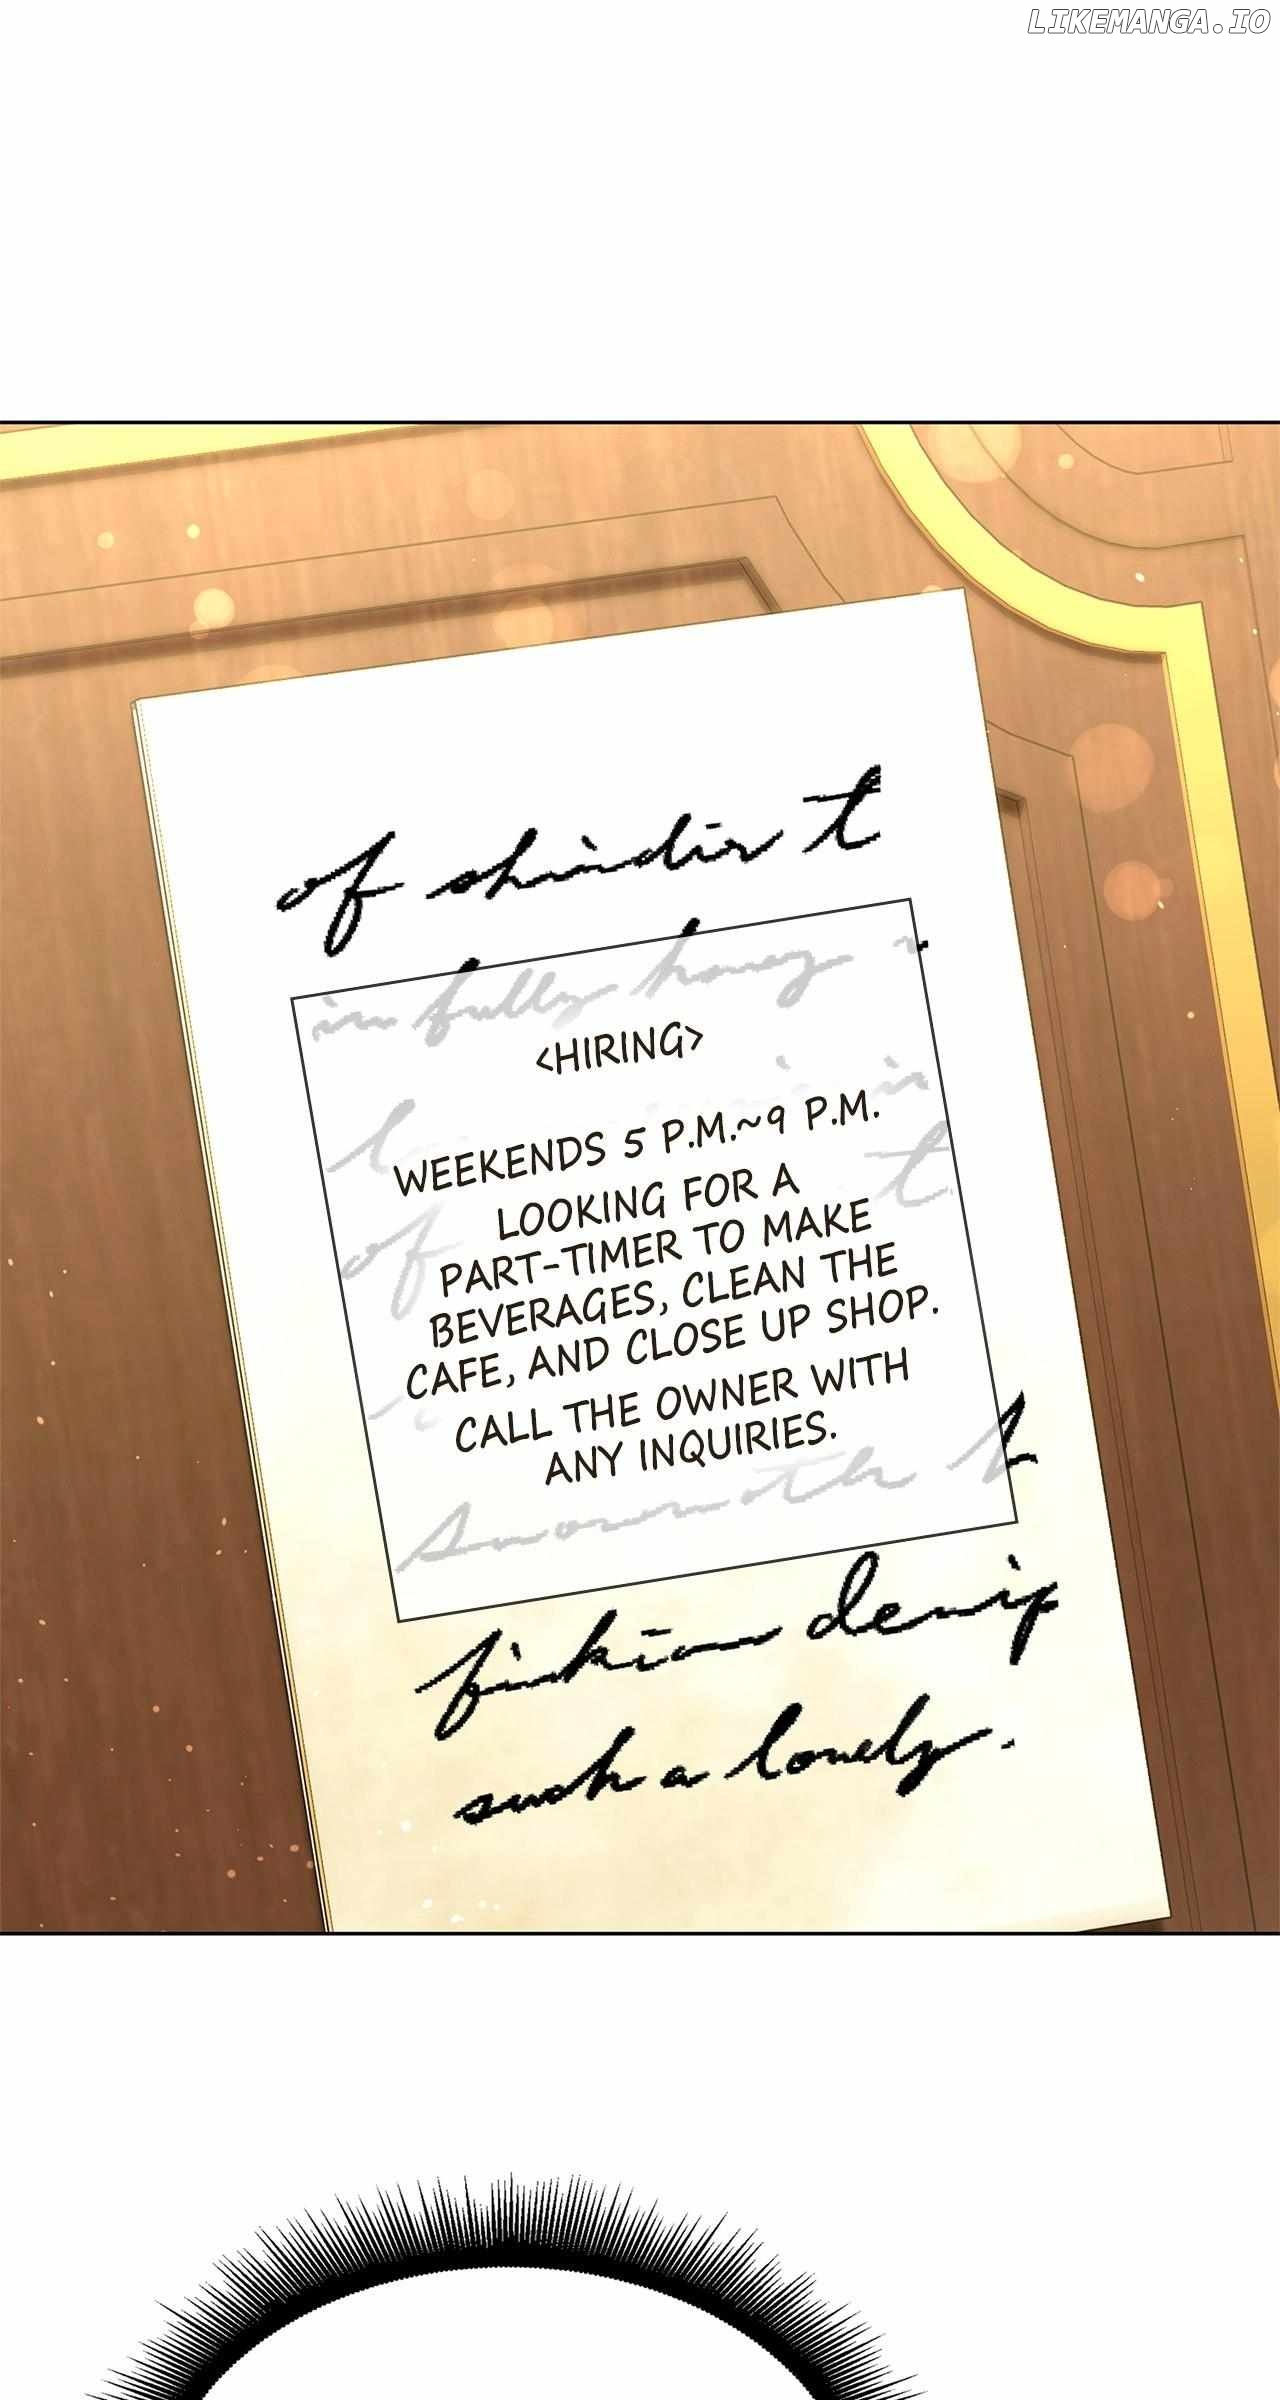 LIKEMANGA.IO
of shindir t
in fully honey
<HIRING>
WEEKENDS 5 P.M.~9 P.M.
LOOKING FOR A
PART-TIMER TO MAKE
BEVERAGES, CLEAN THE
CAFE, AND CLOSE UP SHOP.
CALL THE OWNER WITH
ANY INQUIRIES.
such a lonely.